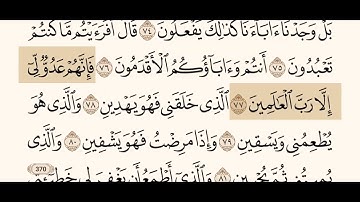 بَلْ وَجَدْنَآ ءَابَآءَنَا كَذَٰلِكَ يَفْعَلُونَ ٧٤ قَالَ أَفَرَءَيْتُم مَّا كُنتُمْ
تَعْبُدُونَ ٧٥ أَنتُمْ وَءَابَآؤُكُمُ ٱلْأَقْدَمُونَ ٧٦ فَإِنَّهُمْ عَدُوٌّ لِّىٓ
إِلَّا رَبَّ ٱلْعَٰلَمِينَ ٧٧ ٱلَّذِى خَلَقَنِى فَهُوَ يَهْدِينِ ٧٨ وَٱلَّذِى هُوَ
يُطْعِمُنِى وَيَسْقِينِ ٧٩ وَإِذَا مَرِضْتُ فَهُوَ يَشْفِينِ ٨٠ وَٱلَّذِى
يُمِيتُنِى ثُمَّ يُحْيِينِ ٨١ وَٱلَّذِىٓ أَطْمَعُ أَن يَغْفِرَ لِى خَطِيٓـَٔتِى
370